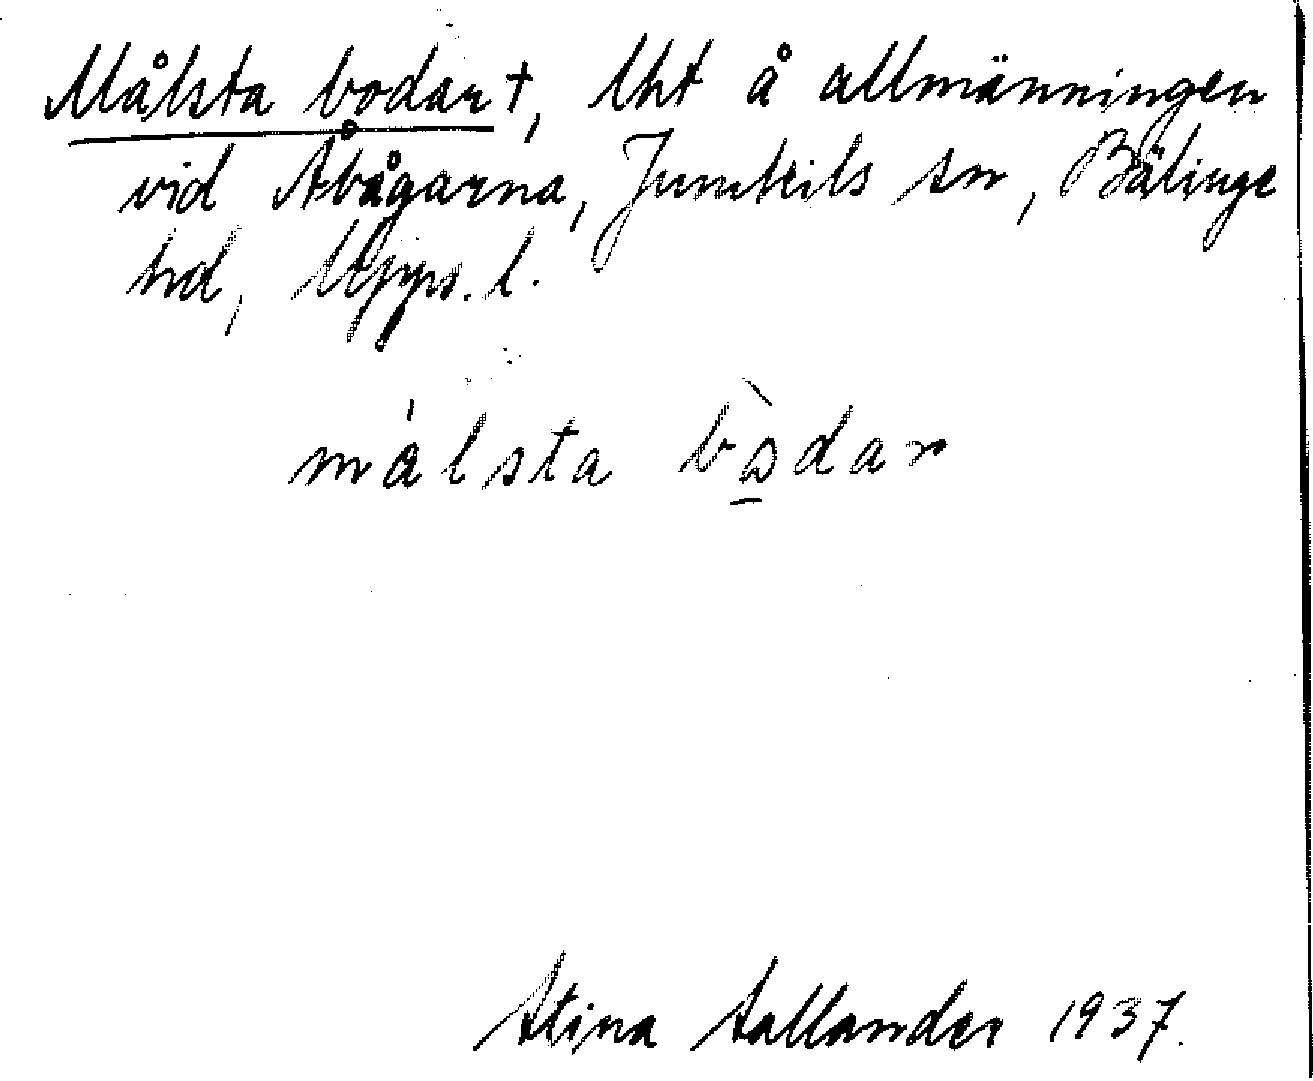 Målsta bodar †, Uht å allmänningen
vid Åbågarna, Jumkils sn, Bälinge
hd, Upps. l.
mǻlsta bò̱dar
Stina Sallander 1937.